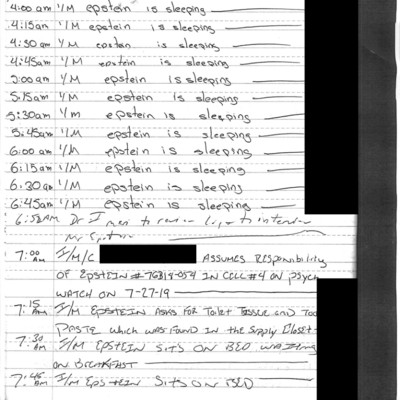 4:00 am I/M epstein is sleeping
4:15am I/M epstein is sleeping
4:30 am I/M epstein is sleeping
4:45am I/M epstein is sleeping
5:00 am I/M epstein is sleeping
5:15am I/M epstein is sleeping
5:30am I/m epstein is sleeping
5:45am I/M epstein is sleeping
6:00 am I/M epstein is sleeping
6:15am I/M epstein is sleeping
6:30 am I/M epstein is sleeping
6:45am I/M epstein is sleeping
6:58AM Dr to review
Mr Epstein
7:00 AM I/M/C ASSUMES RESPONSIBILITY
OF EPSTEIN #76318-054 IN CELL #4 ON PSYCH
WATCH ON 7-27-19
7:15 AM I/M EPSTEIN ASKS FOR TOILET TISSUE AND TOO
PASTE which was FOUND IN the SUPPLY CLOSET
7:30 AM I/M EPSTEIN SITS ON BED WAITING
ON BREAKFAST
7:45 AM I/M EPSTEIN SITS ON BED